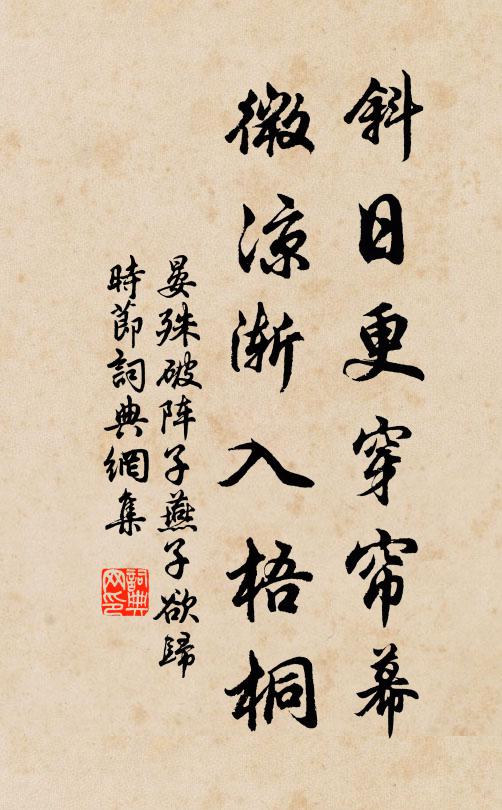 斜日更穿帘幕
微凉渐入梧桐
晏殊破阵子燕子欲歸
時節詞典網集
詞典
网印